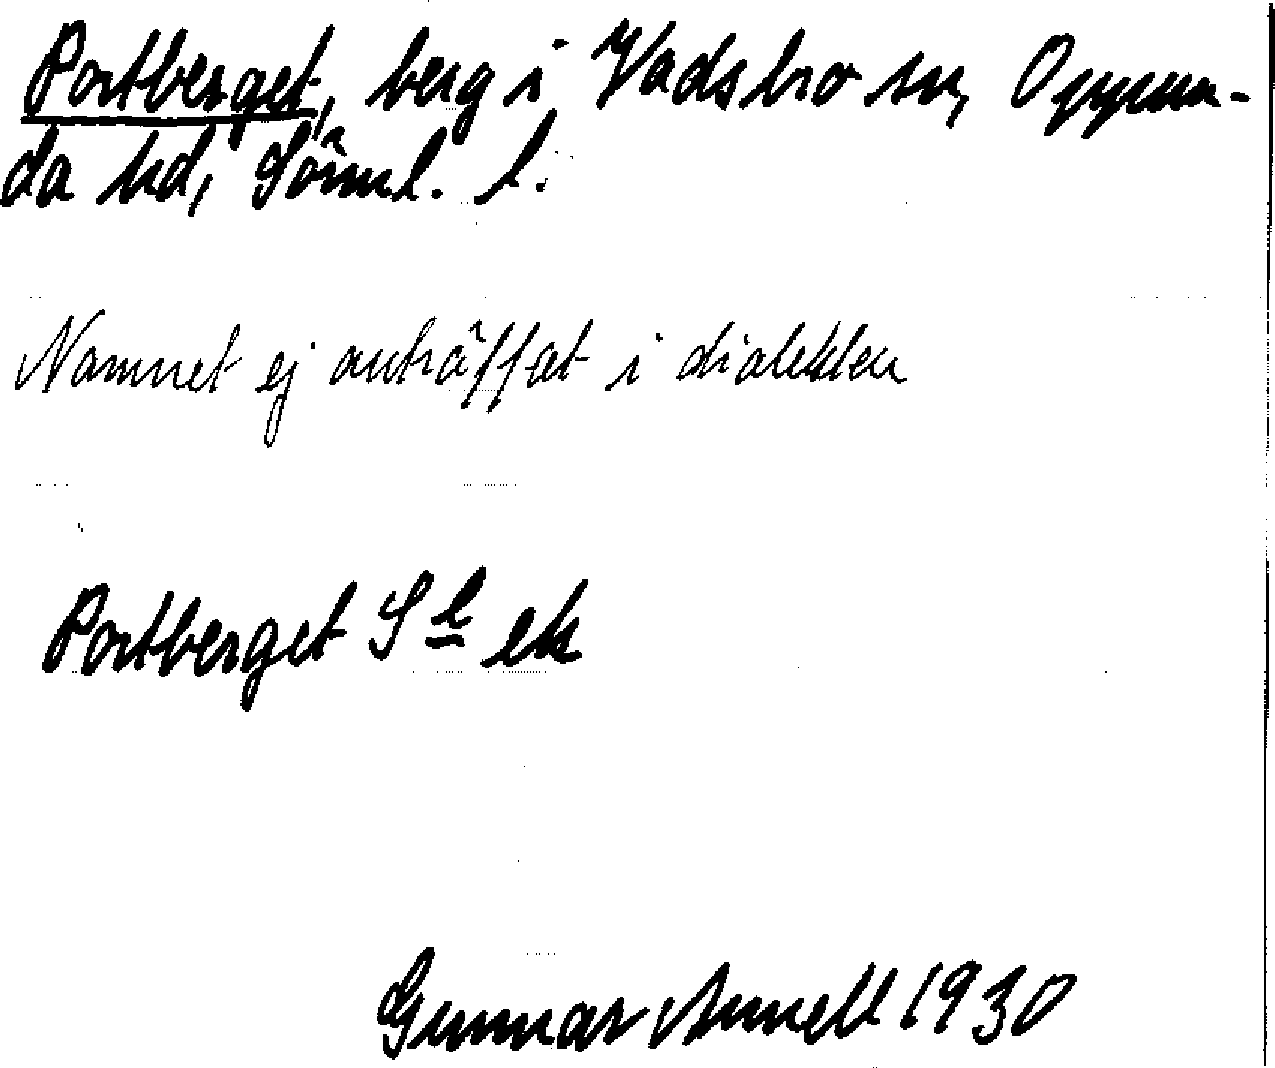 Portberget, berg i Vadsbro sn, Oppun-
da hd, Sörml. l.
Namnet ej anträffat i dialekten
Portberget Sle ek
Gunnar Annell 1930